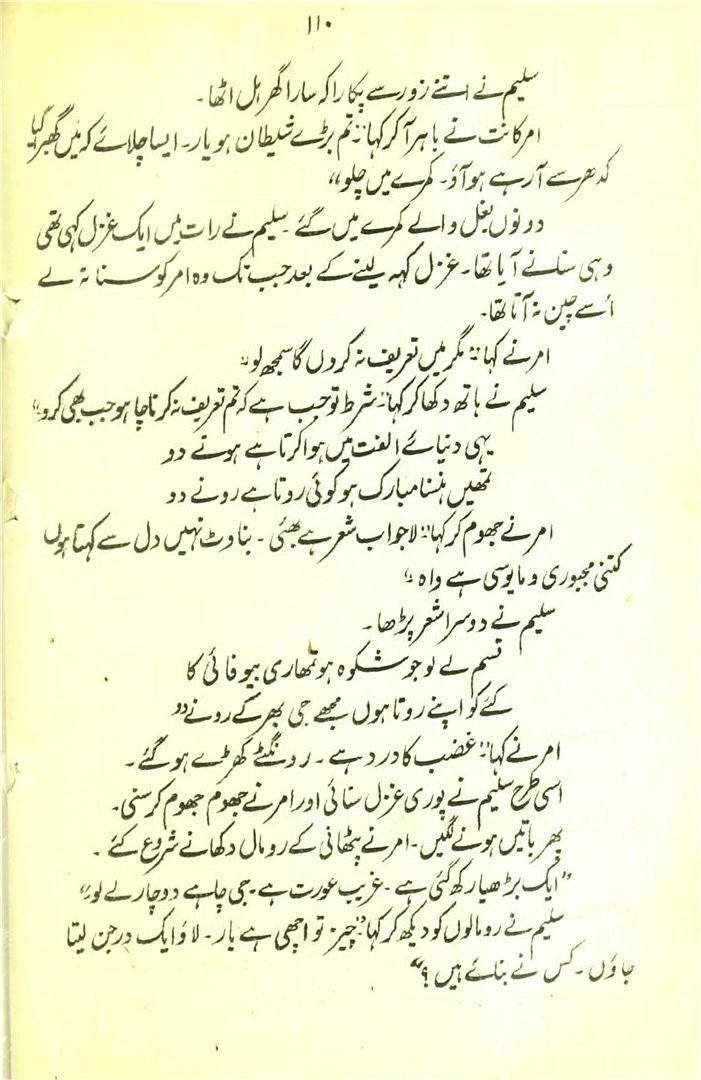 ۱۱۰
سلیم نے اتنے زور سے پکارا کہ سارا گھر ہل اٹھا۔
امرکانت نے باہر آ کر کہا "تم بڑے شیطان ہو یار۔ ایسا چلائے کہ میں گھبرا گیا
کدھر سے آ رہے ہو آؤ۔ کمرے میں چلو"
دونوں بغل والے کمرے میں گئے۔ سلیم نے رات میں ایک غزل کہی تھی
وہی سنانے آیا تھا۔ غزل کہہ لینے کے بعد جب تک وہ امر کو سنا نہ لے
اُسے چین نہ آتا تھا۔
امر نے کہا "مگر میں تعریف نہ کروں گا سمجھ لو"
سلیم نے ہاتھ دکھا کر کہا "شرط تو جب ہے کہ تم تعریف نہ کرنا چاہو جب بھی کرو"
یہی دنیائے الفت میں ہوا کرتا ہے ہونے دو
تمھیں ہنسنا مبارک ہو کوئی روتا ہے رونے دو
امر نے جھوم کر کہا "لاجواب شعر ہے بھئی۔ بناوٹ نہیں دل سے کہتا ہوں
کتنی مجبوری و مایوسی ہے واہ"
سلیم نے دوسرا شعر پڑھا۔
قسم لے لو جو شکوہ ہو تمھاری بیوفائی کا
کئے کو اپنے روتا ہوں مجھے جی بھر کے رونے دو
امر نے کہا "غضب کا درد ہے۔ رونگٹے کھڑے ہو گئے۔
اسی طرح سلیم نے پوری غزل سنائی اور امر نے جھوم جھوم کر سنی۔
پھر باتیں ہونے لگیں۔ امر نے پٹھانی کے رومال دکھانے شروع کئے۔
"ایک بڑھیا رکھ گئی ہے۔ غریب عورت ہے۔ جی چاہے دو چار لے لو"
سلیم نے رومالوں کو دیکھ کر کہا "چیز تو اچھی ہے یار۔ لاؤ ایک درجن لیتا
جاؤں۔ کس نے بنائے ہیں؟"